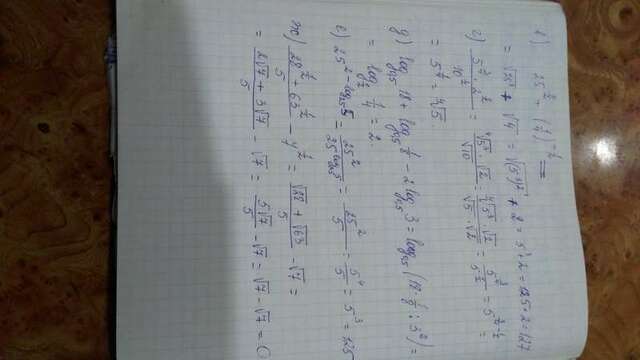 в) 25^{3/2} + (1/4)^{-1/2} =
= √25³ + √4 = √(5³)² + 2 = 5³ + 2 = 125 + 2 = 127
г) (5^{3/4} · 2^{1/2}) / 10^{1/2} = (⁴√5³ · √2) / √10 = (⁴√5³ · √2) / (√5 · √2) = 5^{3/4} / 5^{1/2} = 5^{3/4 - 1/2} =
= 5^{1/4} = ⁴√5.
д) log_{0,5} 18 + log_{0,5} 1/8 - 2 log_{0,5} 3 = log_{0,5} (18 · 1/8 : 3²) =
= log_{1/2} 1/4 = 2.
е) 25^{2 - log_{25} 5} = 25² / 25^{log_{25} 5} = 25² / 5 = 5⁴ / 5 = 5³ = 125
ж) (28^{1/2} + 63^{1/2}) / 5 - 7^{1/2} = (√28 + √63) / 5 - √7 =
= (2√7 + 3√7) / 5 - √7 = 5√7 / 5 - √7 = √7 - √7 = 0